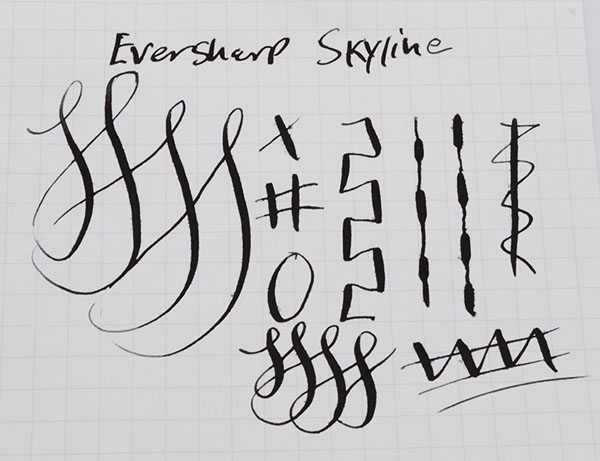 Eversharp Skyline
X
#
O